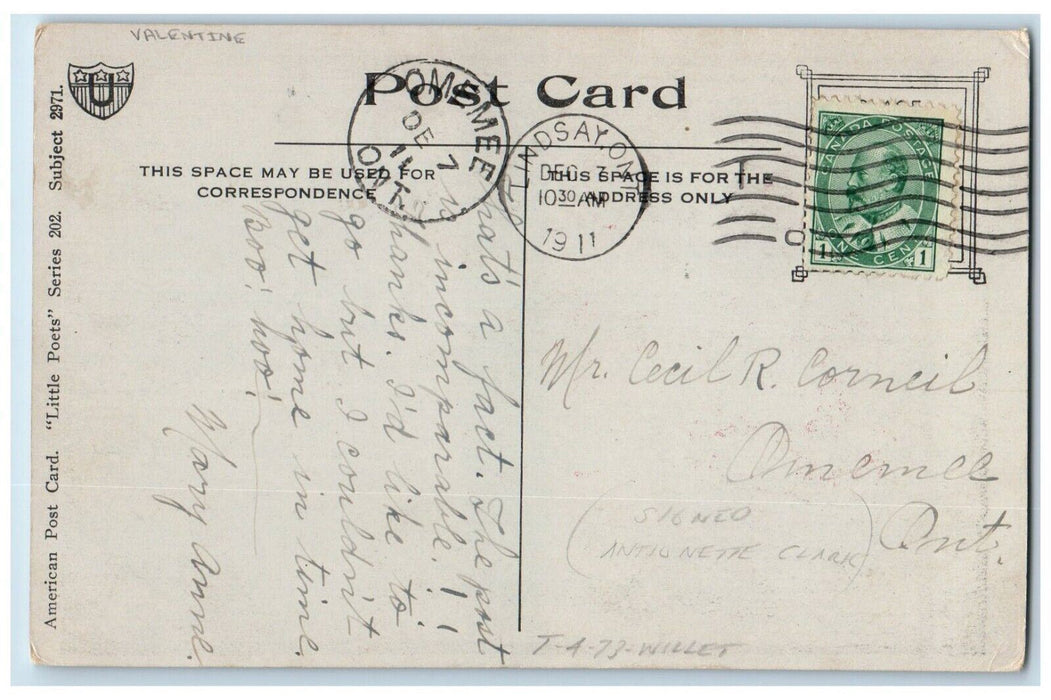 VALENTINE
U
Post Card
OMEMEE
DE 7
11
ONT.
LINDSAY, ONT.
DEC 7
10 30 AM
1911
CANADA POSTAGE
1 ONE CENT 1
THIS SPACE MAY BE USED FOR
CORRESPONDENCE
THIS SPACE IS FOR THE
ADDRESS ONLY
American Post Card. "Little Poets" Series 202. Subject 2971.
That's a fact. The post
is incomparable!!
Thanks. I'd like to
go but I couldn't
get home in time.
Boo! hoo!
Mary Anne.
Mr. Cecil R. Corneil
Omemee
Ont.
(SIGNED
ANTIONETTE CLARK)
T-4-73-WILLET